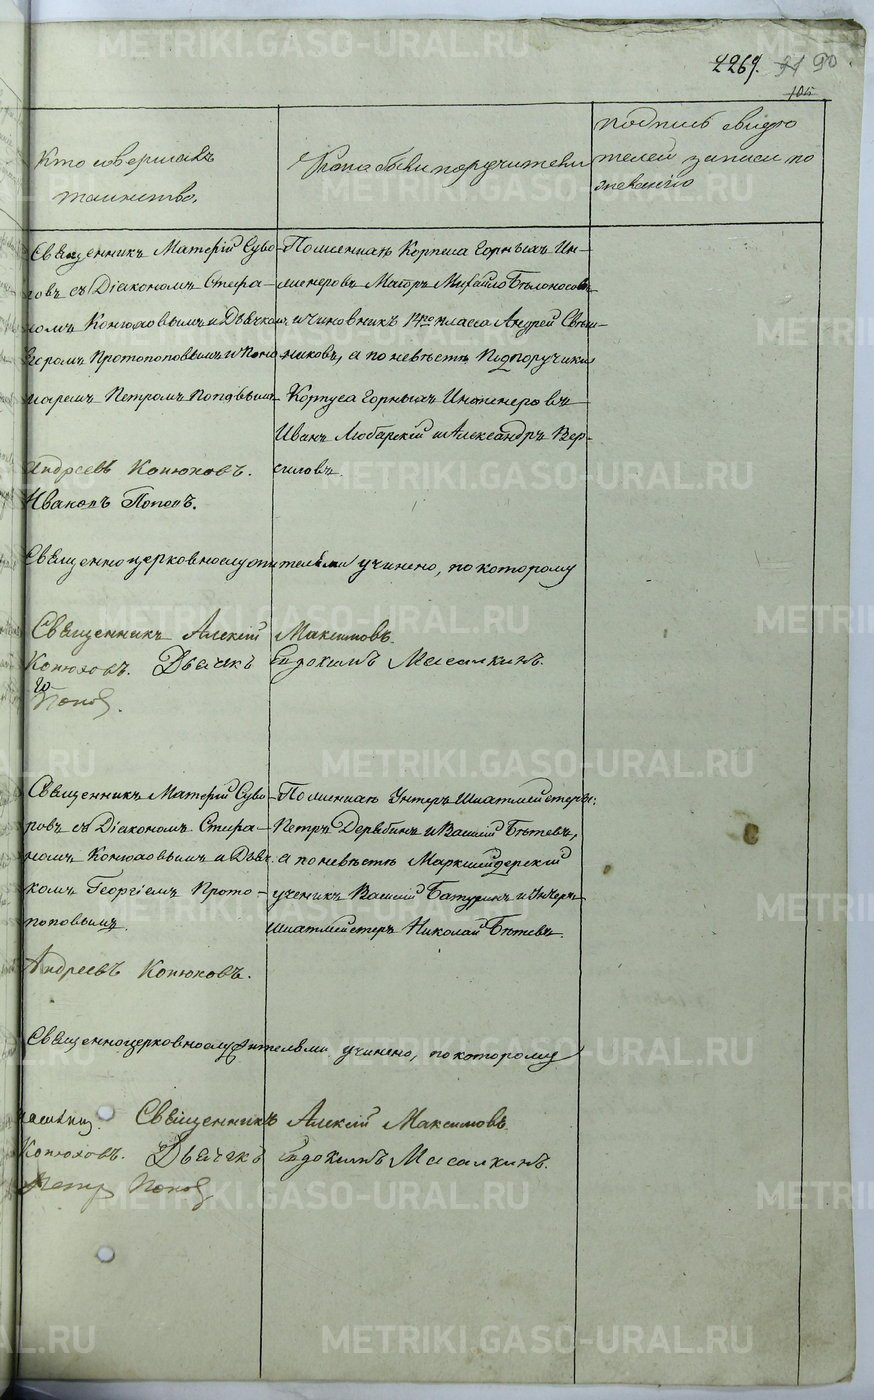 2269. 91 90
105
Кто совершалъ
таинство.
Кто были поручители
подпись свидѣ
телей записи по
Священникъ Матѳій Суво-
ровъ съ Діакономъ Стефа-
номъ Конюховымъ и Дьячкомъ
Егоромъ Протопоповымъ и Поно
маремъ Петромъ Поповымъ
Андреевъ Конюховъ.
Иваковъ Поповъ.
По женихѣ Корпуса Горныхъ Ин-
женеровъ Маіоръ Михайло Бѣлоносовъ
и чиновникъ 14го класса Андрей
а по невѣстѣ Подпоручики
Корпуса Горныхъ Инженеровъ
Иванъ Любарскій и Александръ Вер-
силовъ.
Священноцерковнослужителями учинено, по которому
Священникъ Алексій Максимовъ
Конюховъ. Дьячекъ Евдокимъ Масалкинъ.
Поповъ.
Священникъ Матѳій Суво-
ровъ съ Діакономъ Стефа-
номъ Конюховымъ и Дьяч
комъ Георгіемъ Прото-
поповымъ.
Андреевъ Конюховъ.
По женихѣ Унтеръ Шихтмейстеры:
Петръ Дерябинъ и Василій Бѣтевъ,
а по невѣстѣ Маркшейдерскій
ученикъ Василій Батуринъ и Унтеръ
шихтмейстеръ Николай Бѣтевъ.
Священноцерковнослужительми учинено, по которому
Священникъ Алексій Максимовъ
Конюховъ. Дьячекъ Евдокимъ Масалкинъ.
Петръ Поповъ
METRIKI.GASO-URAL.RU